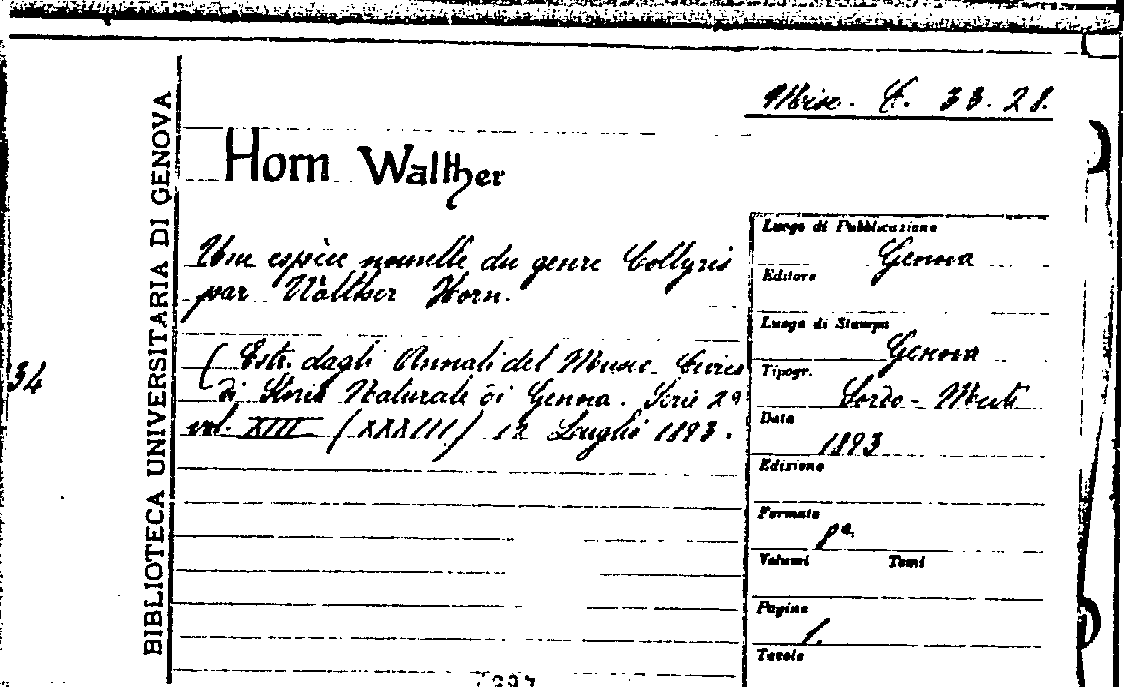 Misc. C. 33.28.
Horn Walther
Une espèce nouvelle du genre Collyris
par Walther Horn.
(Estr. dagli Annali del Museo Civico
di Storia Naturale di Genova. Serie 2ª
vol. XIII (XXXIII) 12 Luglio 1893.
34
BIBLIOTECA UNIVERSITARIA DI GENOVA
Luogo di Pubblicazione
Genova
Editore
Luogo di Stampa
Genova
Tipogr.
Sordo-Muti
Data
1893
Edizione
Formato
8º
Volumi Tomi
Pagine
1.
Tavole